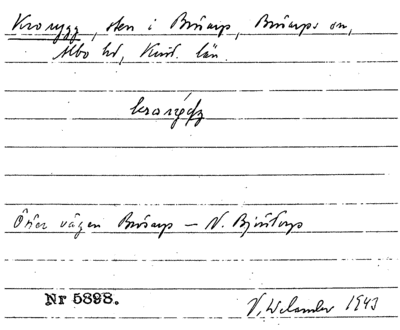 Kronygg, sten i Brösarp, Brösarps sn,
Albo hd, Krist. län.
Öster vägen Brösarp — N. Björstorp
Nr 5898.
1943